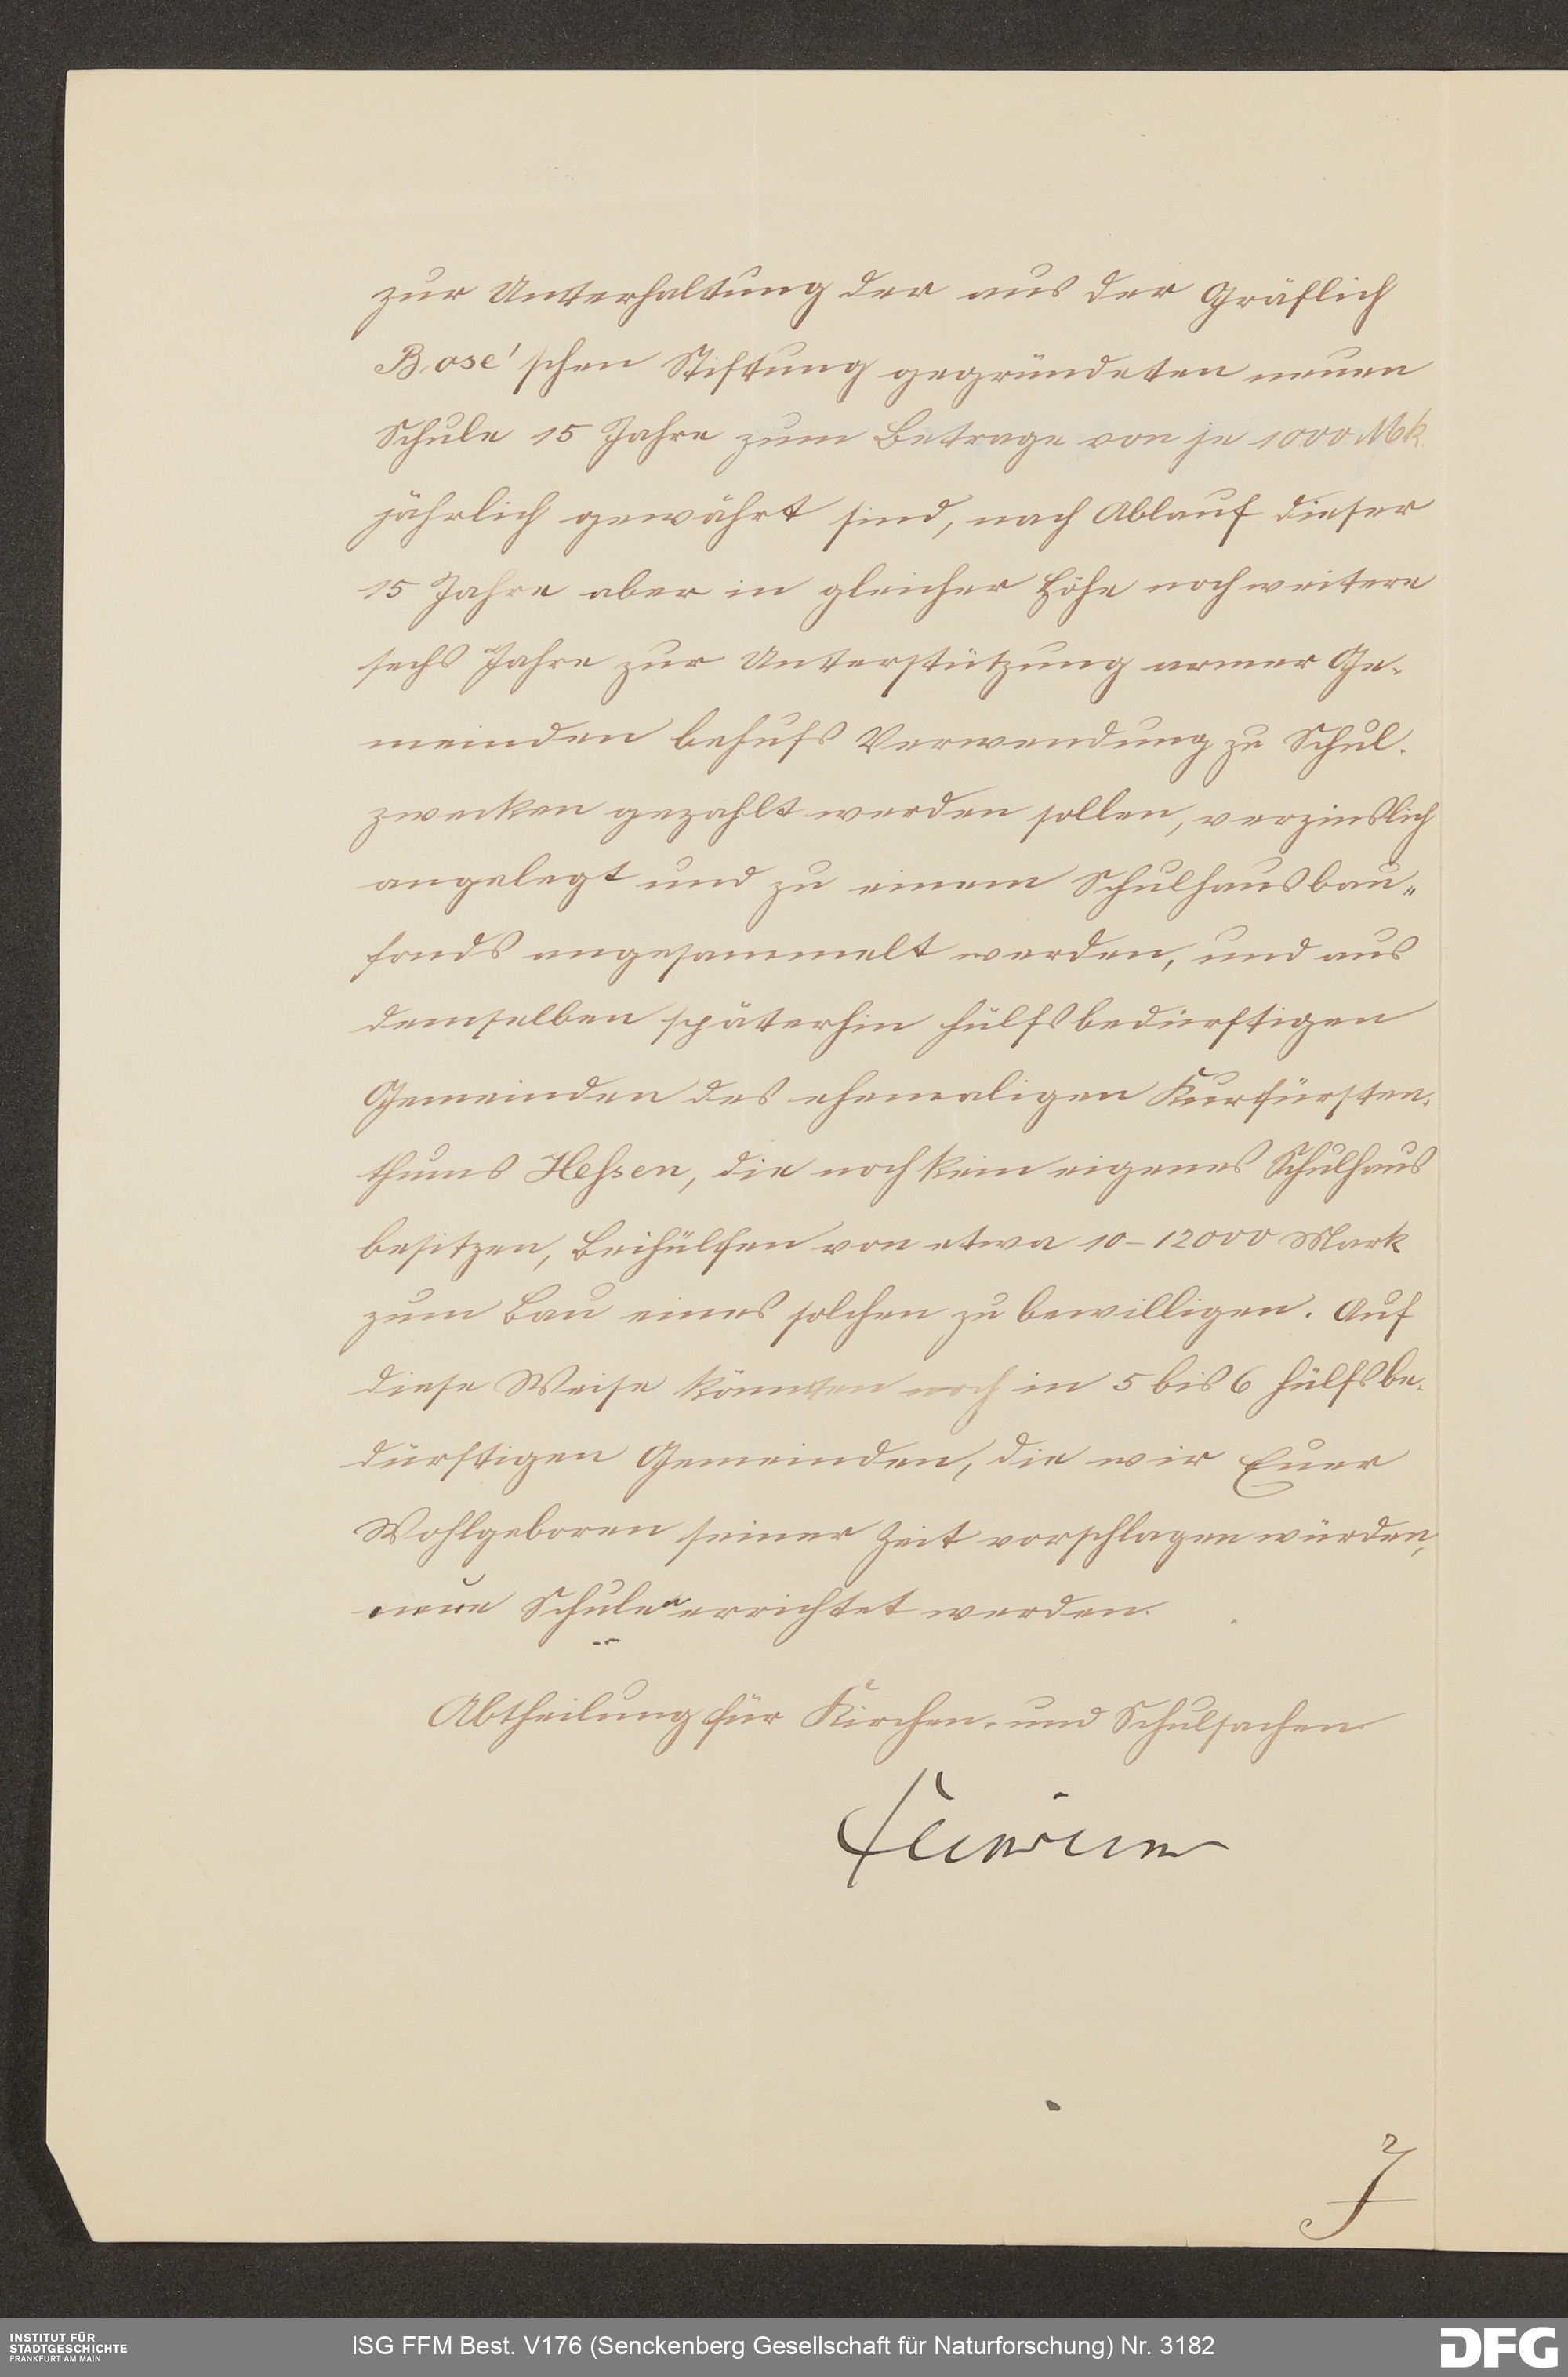 zur Unterhaltung der aus der Gräflich
Bose'schen Stiftung gegründeten neuen
Schule 15 Jahre zum Betrage von je 1000 Mk
jährlich gewährt sind, nach Ablauf dieser
15 Jahre aber in gleicher Höhe noch weitere
sechs Jahre zur Unterstützung armer Ge-
meinden behufs Verwendung zu Schul-
zwecken gezahlt werden sollen, verzinslich
angelegt und zu einem Schulhausbau-
fonds angesammelt werden, und aus
demselben späterhin hülfsbedürftigen
Gemeinden des ehemaligen Kurfürsten-
thums Hessen, die noch kein eigenes Schulhaus
besitzen, Beihülfen von etwa 10-12000 Mark
zum Bau eines solchen zu bewilligen. Auf
diese Weise könnten noch in 5 bis 6 hülfsbe-
dürftigen Gemeinden, die wir Euer
Wohlgeboren seiner Zeit vorschlagen würden,
neue Schulen errichtet werden.
Abtheilung für Kirchen- und Schulsachen
INSTITUT FÜR
STADTGESCHICHTE
FRANKFURT AM MAIN
ISG FFM Best. V176 (Senckenberg Gesellschaft für Naturforschung) Nr. 3182
DFG